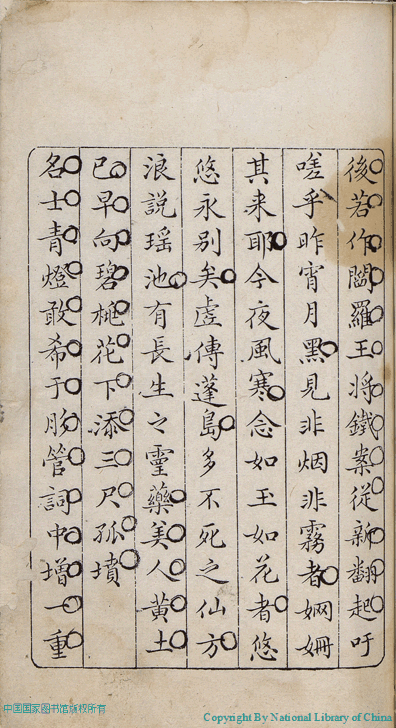 後若作閻羅王將鐵案從新翻起吁
嗟乎昨宵月黑見非烟非霧者姍姍
其来耶今夜風寒念如玉如花者悠
悠永别矣虚傳蓬島多不死之仙方
浪説瑶池有長生之靈藥美人黄土
已早向碧桃花下添三尺孤墳
名士青燈敢希于彤管詞中增一重
中国国家图书馆版权所有
Copyright By National Library of China